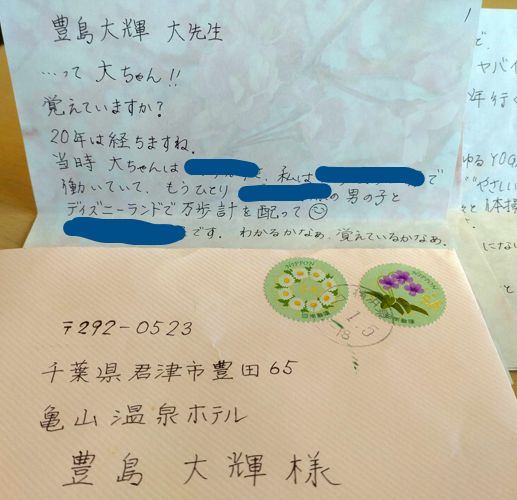 1
豊島大輝 大先生
…って 大ちゃん!!
覚えていますか?
20年は経ちますね.
当時 大ちゃんは 、私は で
働いていて、もうひとり の男の子と
ディズニーランドで万歩計を配って☺
です. わかるかなぁ、覚えているかなぁ.
ど、
ヤバイ
年行く
ゆるYOG
やさしい
体操
にない
と
NIPPON
NIPPON
日本郵便
〒292-0523
千葉県君津市豊田65
亀山温泉ホテル
豊島 大輝様